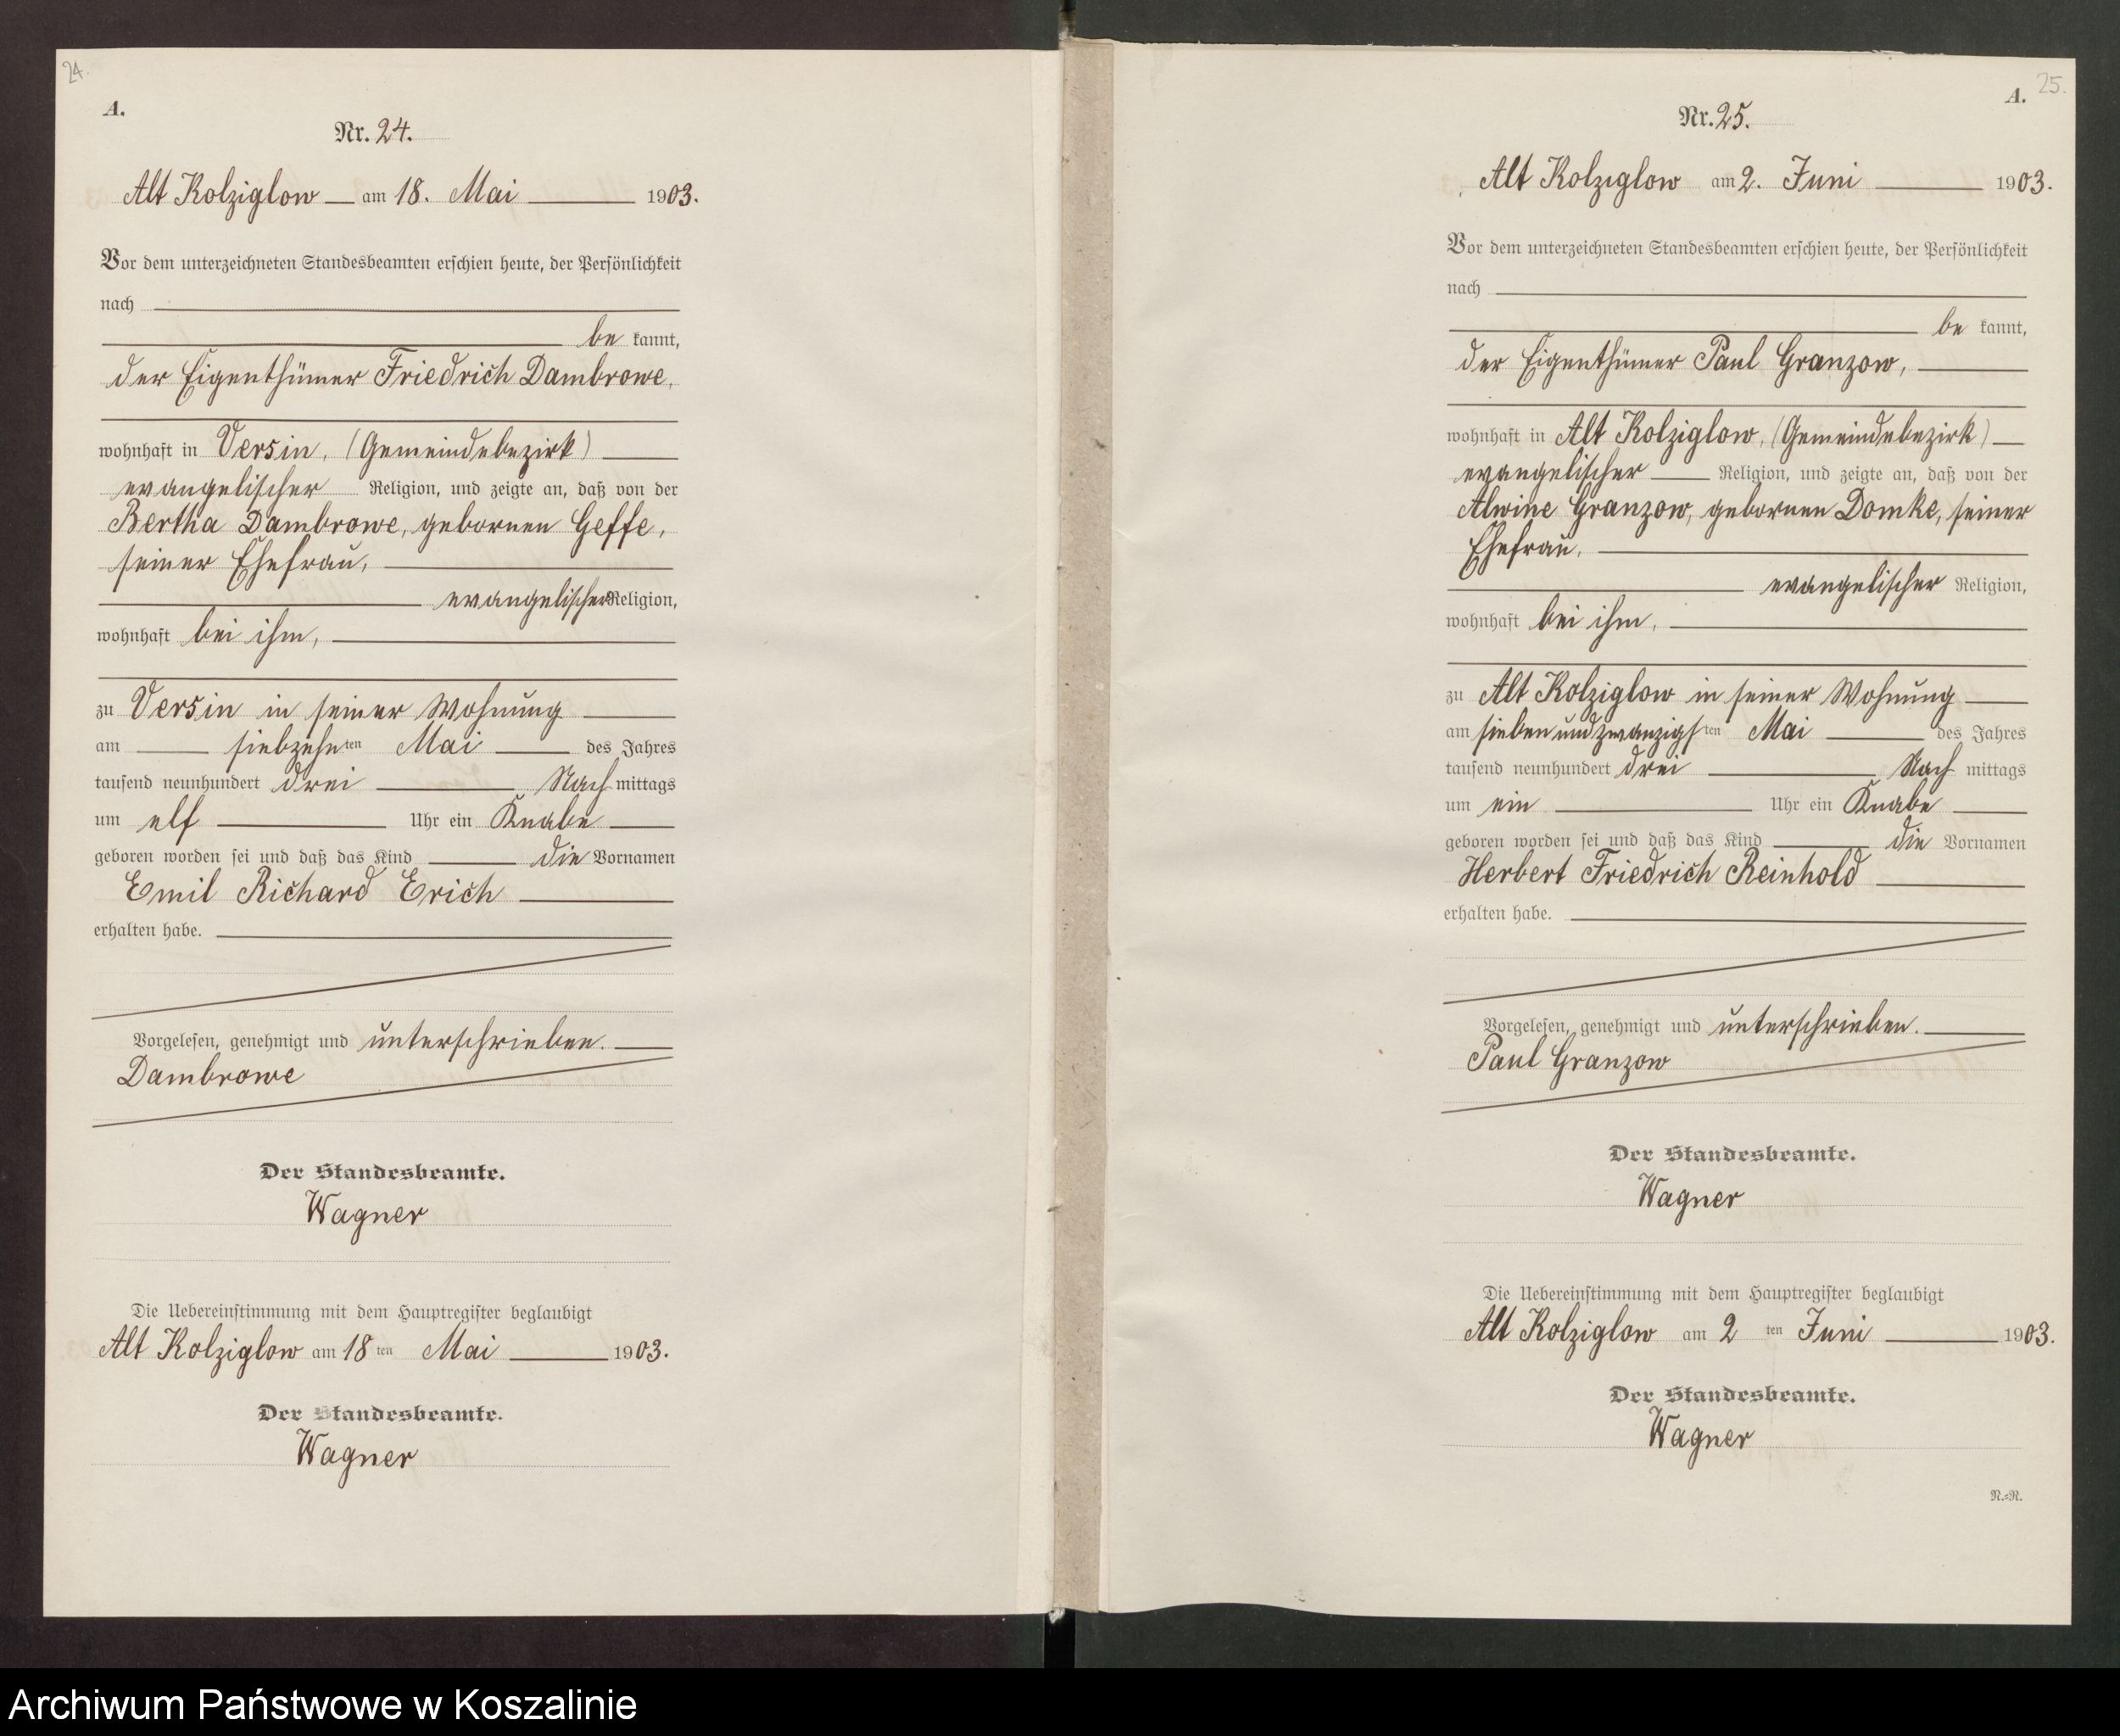 24.
A.
Nr. 24.
Alt Kolziglow am 18. Mai 1903.
Vor dem unterzeichneten Standesbeamten erschien heute, der Persönlichkeit
nach
be kannt,
der Eigenthümer Friedrich Dambrowe,
wohnhaft in Versin, (Gemeindebezirk)
evangelischer Religion, und zeigte an, daß von der
Bertha Dambrowe, gebornen Geffe,
seiner Ehefrau,
evangelischer Religion,
wohnhaft bei ihm,
zu Versin in seiner Wohnung
am siebzehnten Mai des Jahres
tausend neunhundert drei Nachmittags
um elf Uhr ein Knabe
geboren worden sei und daß das Kind die Vornamen
Emil Richard Erich
erhalten habe.
Vorgelesen, genehmigt und unterschrieben.
Dambrowe
Der Standesbeamte.
Wagner
Die Uebereinstimmung mit dem Hauptregister beglaubigt
Alt Kolziglow am 18ten Mai 1903.
Der Standesbeamte.
Wagner
25.
A.
Nr. 25.
Alt Kolziglow am 2. Juni 1903.
Vor dem unterzeichneten Standesbeamten erschien heute, der Persönlichkeit
nach
be kannt,
der Eigenthümer Paul Granzow,
wohnhaft in Alt Kolziglow, (Gemeindebezirk)
evangelischer Religion, und zeigte an, daß von der
Alwine Granzow, gebornen Domke, seiner
Ehefrau,
evangelischer Religion,
wohnhaft bei ihm,
zu Alt Kolziglow in seiner Wohnung
am siebenundzwanzigsten Mai des Jahres
tausend neunhundert drei Nach mittags
um ein Uhr ein Knabe
geboren worden sei und daß das Kind die Vornamen
Herbert Friedrich Reinhold
erhalten habe.
Vorgelesen, genehmigt und unterschrieben.
Paul Granzow
Der Standesbeamte.
Wagner
Die Uebereinstimmung mit dem Hauptregister beglaubigt
Alt Kolziglow am 2 ten Juni 1903.
Der Standesbeamte.
Wagner
N.=R.
Archiwum Państwowe w Koszalinie